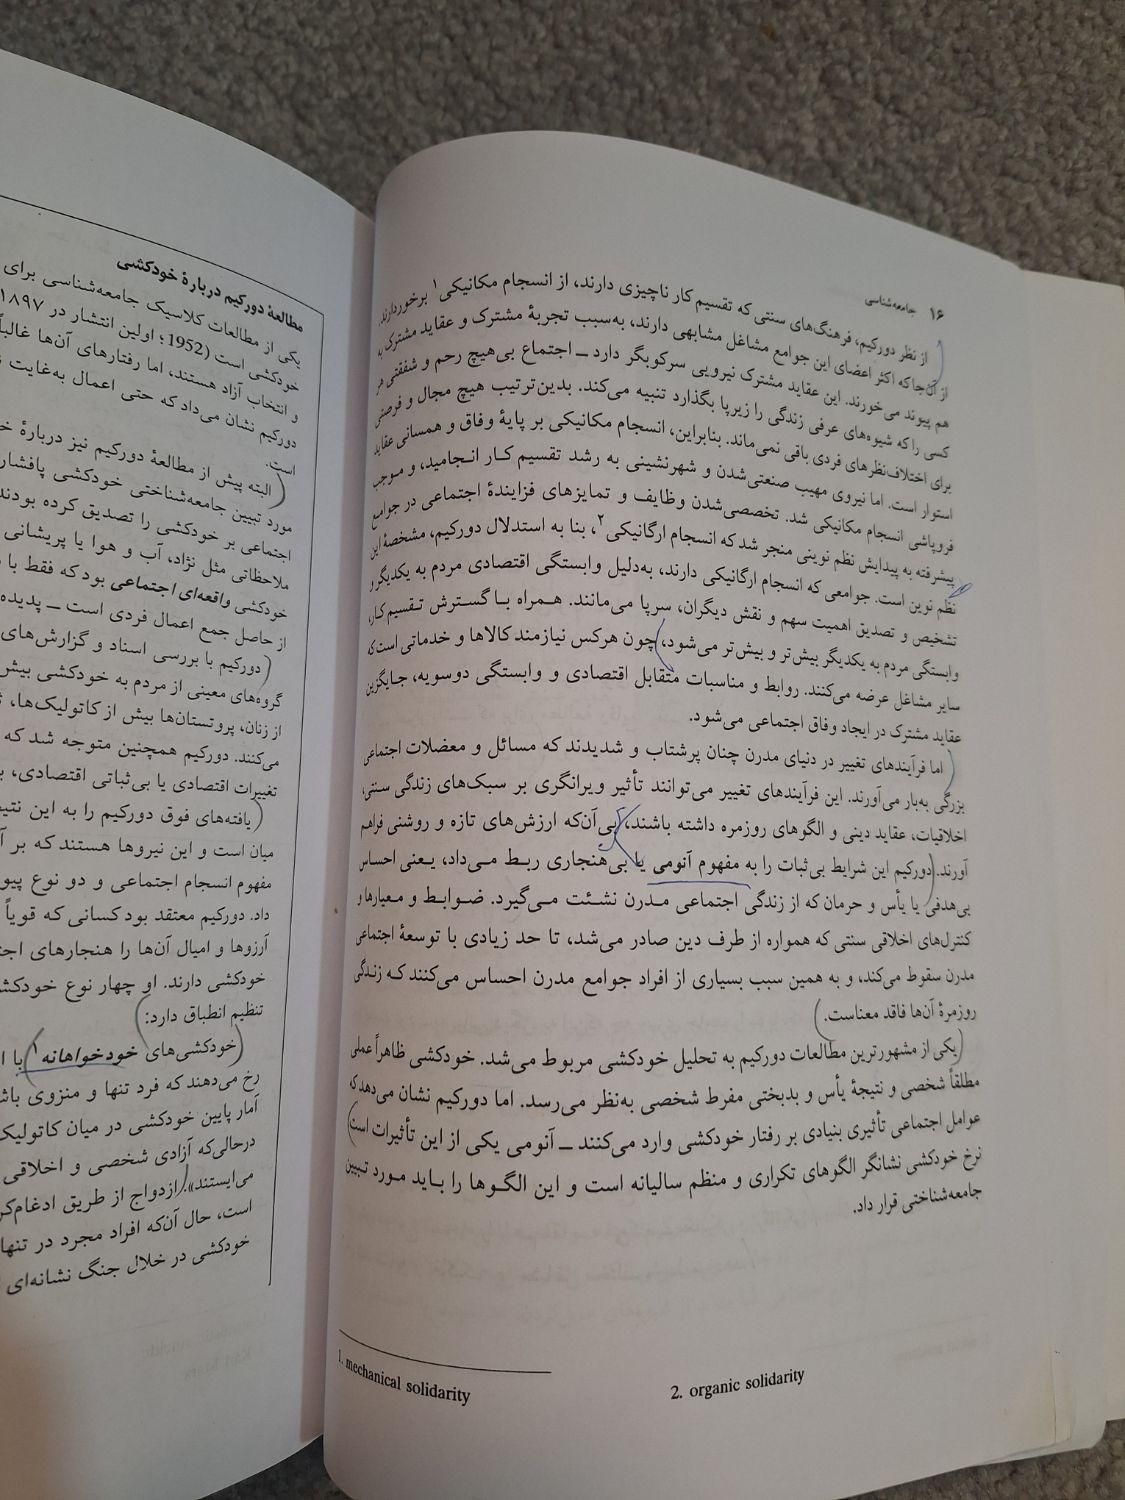 ۱۶ جامعه‌شناسی
از نظر دورکیم، فرهنگ‌های سنتی که تقسیم کار ناچیزی دارند، از انسجام مکانیکی۱ برخوردارند.
از آن‌جا که اکثر اعضای این جوامع مشاغل مشابهی دارند، به‌سبب تجربهٔ مشترک و عقاید مشترک به
هم پیوند می‌خورند. این عقاید مشترک نیرویی سرکوبگر دارد ــ اجتماع بی‌هیچ رحم و شفقتی هر
کسی را که شیوه‌های عرفی زندگی را زیرپا بگذارد تنبیه می‌کند. بدین‌ترتیب هیچ مجال و فرصتی
برای اختلاف‌نظرهای فردی باقی نمی‌ماند. بنابراین، انسجام مکانیکی بر پایهٔ وفاق و همسانی عقاید
استوار است. اما نیروی مهیب صنعتی‌شدن و شهرنشینی به رشد تقسیم کـار انـجامید، و مـوجب
فروپاشی انسجام مکانیکی شد. تخصصی‌شدن وظایف و تمایزهای فزایندهٔ اجتماعی در جوامع
پیشرفته به پیدایش نظم نوینی منجر شد که انسجام ارگانیکی۲، بنا به استدلال دورکیم، مشخصهٔ این
نظم نوین است. جوامعی که انسجام ارگانیکی دارند، به‌دلیل وابستگی اقتصادی مردم به یکدیگر و
تشخیص و تصدیق اهمیت سهم و نقش دیگران، سرپا می‌مانند. همراه بـا گسـترش تـقسیم کـار،
وابستگی مردم به یکدیگر بیش‌تر و بیش‌تر می‌شود، چون هرکس نیازمند کالاها و خدماتی است که
سایر مشاغل عرضه می‌کنند. روابط و مناسبات متقابل اقتصادی و وابستگی دوسویه، جـایگزین
عقاید مشترک در ایجاد وفاق اجتماعی می‌شود.
اما فرآیندهای تغییر در دنیای مدرن چنان پرشتاب و شدیدند که مسائل و معضلات اجتماعی
بزرگی به‌بار می‌آورند. این فرآیندهای تغییر می‌توانند تأثیر ویرانگری بر سبک‌های زندگی سنتی،
اخلاقیات، عقاید دینی و الگوهای روزمره داشته باشند، بی‌آن‌که ارزش‌های تازه و روشنی فراهم
آورند. دورکیم این شرایط بی‌ثبات را به مفهوم آنومی یا بی‌هنجاری ربـط مـی‌داد، یـعنی احساس
بی‌هدفی یا یأس و حرمان که از زندگی اجتماعی مـدرن نشـئت مـی‌گیرد. ضـوابـط و مـعیارها و
کنترل‌های اخلاقی سنتی که همواره از طرف دین صادر می‌شد، تا حد زیادی با توسعهٔ اجتماعی
مدرن سقوط می‌کند، و به همین سبب بسیاری از افراد جوامع مدرن احساس می‌کنند کـه زنـدگی
روزمرهٔ آن‌ها فاقد معناست.
یکی از مشهورترین مطالعات دورکیم به تحلیل خودکشی مربوط می‌شد. خودکشی ظاهراً عملی
مطلقاً شخصی و نتیجهٔ یأس و بدبختی مفرط شخصی به‌نظر می‌رسد. اما دورکیم نشان می‌دهد که
عوامل اجتماعی تأثیری بنیادی بر رفتار خودکشی وارد می‌کنند ــ آنومی یکی از این تأثیرات است.
نرخ خودکشی نشانگر الگوهای تکراری و منظم سالیانه است و این الگـوها را بـاید مـورد تـبیین
جامعه‌شناختی قرار داد.
1. mechanical solidarity
2. organic solidarity
مطالعهٔ دورکیم دربارهٔ خودکشی
یکی از مطالعات کلاسیک جامعه‌شناسی برای
خودکشی است (1952؛ اولین انتشار در ۱۸۹۷
و انتخاب آزاد هستند، اما رفتارهای آن‌ها غالباً
دورکیم نشان می‌داد که حتی اعمال به‌غایت
است.
البته پیش از مطالعهٔ دورکیم نیز دربارهٔ
مورد تبیین جامعه‌شناختی خودکشی
اجتماعی بر خودکشی را تصدیق کرده بودند
ملاحظاتی مثل نژاد، آب و هوا یا پریشانی
خودکشی واقعه‌ای اجتماعی بود که فقط با
از حاصل جمع اعمال فردی است ــ پدیده
دورکیم با بررسی اسناد و گزارش‌های
گروه‌های معینی از مردم به خودکشی بیش
از زنان، پروتستان‌ها بیش از کاتولیک‌ها،
می‌کنند. دورکیم همچنین متوجه شد که
تغییرات اقتصادی یا بی‌ثباتی اقتصادی،
یافته‌های فوق دورکیم را به این
میان است و این نیروها هستند که بر
مفهوم انسجام اجتماعی و دو نوع
داد. دورکیم معتقد بود کسانی که قویاً
آرزوها و امیال آن‌ها را هنجارهای
خودکشی دارند. او چهار نوع
تنظیم انطباق دارد:
خودکشی‌های خودخواهانه۱ با
رخ می‌دهند که فرد تنها و منزوی
آمار پایین خودکشی در میان
درحالی‌که آزادی شخصی و اخلاقی
می‌ایستند». ازدواج از طریق
است، حال آن‌که افراد مجرد در
خودکشی در خلال جنگ نشانه‌ای